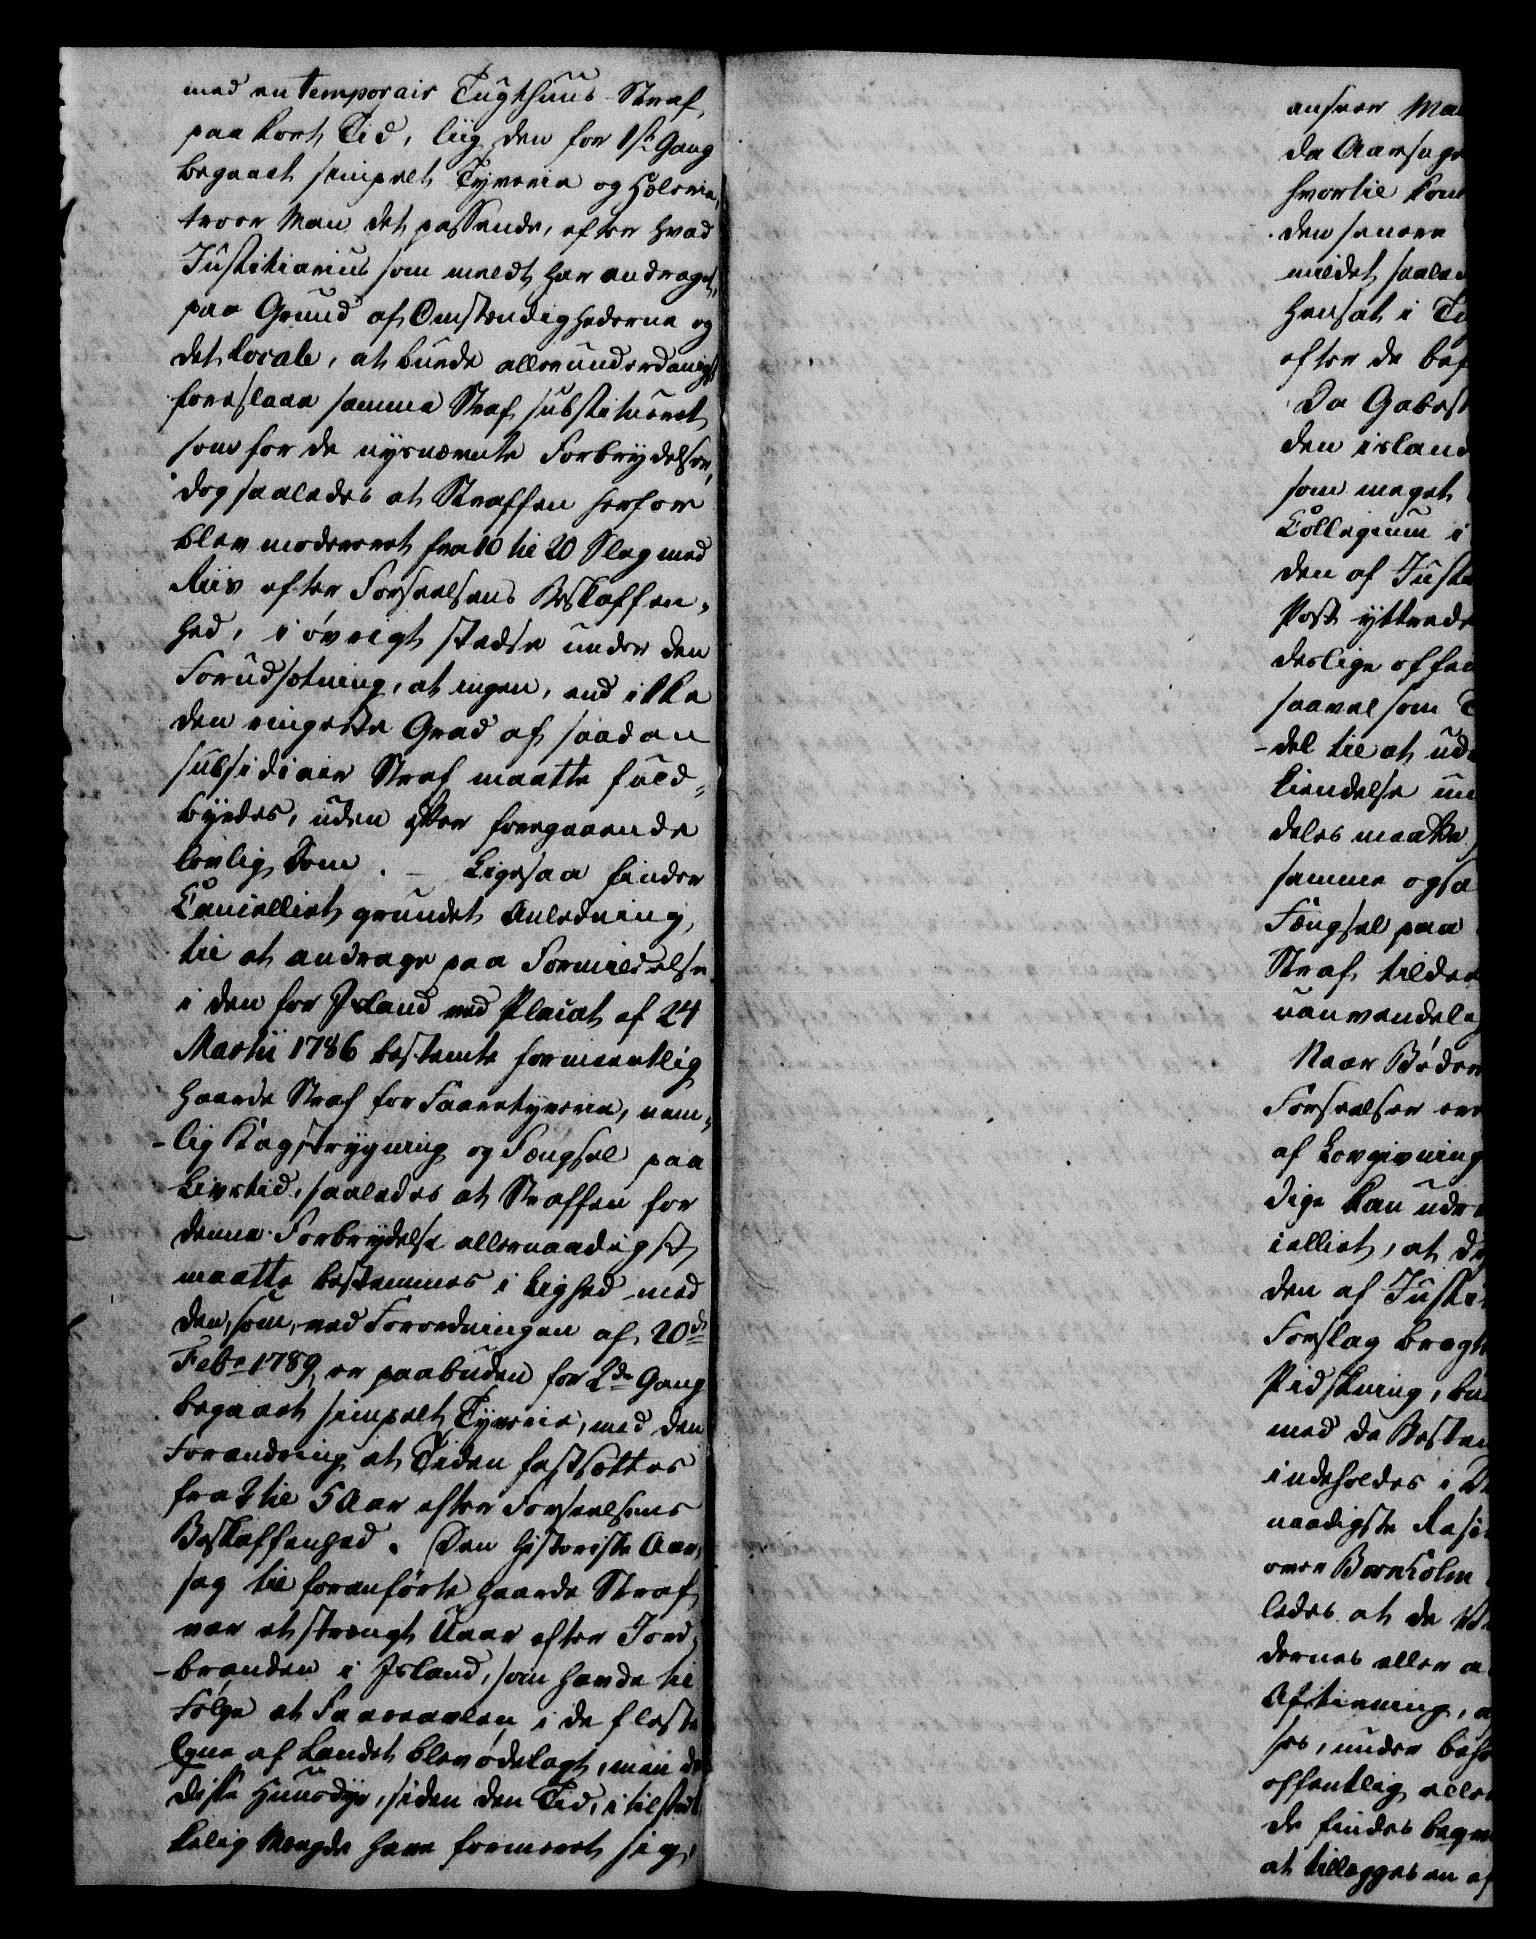 med en temporair Tugthuus-Straf
paa kort Tid, liig den for 1ste Gang
begaaet simpelt Tyverie og Hælerie,
troer Man det passende, efter hvad
Justitiarius som meldt har andraget,
paa Grund af Omstændighederne og
det locale, at burde allerunderdanigst
foreslaae samme Straf substitueret
som for de nysnævnte Forbrydelser,
dog saaledes at Straffen herfor
blev modereret fra 10 til 20 Slag med
Riis efter Forseelsens Beskaffen-
hed, i øvrigt stedse under den
Forudsætning, at ingen, end ikke
den ringeste Grad af saadan
subsidiair Straf maatte fuld-
byrdes, uden efter foregaaende
lovlig Dom. – Ligesaa finder
Cancelliet grundet Anledning
til at andrage paa Formildelse
i den for Island ved Placat af 24
Martii 1786 bestemte formeentlig
haarde Straf for Faaretyverie, nem-
-lig Kagstrygning og Fængsel paa
Livstid, saaledes at Straffen for
denne Forbrydelse allernaadigst
maatte bestemmes i Lighed med
den, som, ved Forordningen af 20de
Febr 1789, er paabuden for 2den Gang
begaaet simpelt Tyverie, med den
Forandring at Tiden fastsættes
fra 2 til 5 Aar efter Forseelsens
Beskaffenhed. Den historiske Aar-
sag til foranførte haarde Straf
var et strengt Uaar efter Jord-
-branden i Island, som havde til
Følge at Faareavlen i de fleste
Egne af Landet blev ødelagt, men da
disse Huusdyr, siden den Tid, i tilstræk-
kelig Mængde have formeret sig,
ansees Ma
da Aarsage
hvortil kom
den senere
mildet saaled
hensat i Tu
efter de bef
Da Gabest
den island
som meget
Collegium i
den af Justi
Post yttrede
deslige offen
saavel som T
-del til at ud
kiendelse un
deles maatte
samme ogsa
Fængsel paa
Straf tilde
uanvendelig
Naar Bøder
Forseelser er
af Lovgivning
dige kan udr
celliet, at d
den af Justi
Forslag bragt
Pidskning, bu
med de Bestem
indeholdes i
naadigste Resi
over Bornholm
ledes at de
dernes eller a
Aftiening, a
ses, under beh
offentlig eller
de findes beqve
at tillægges en af